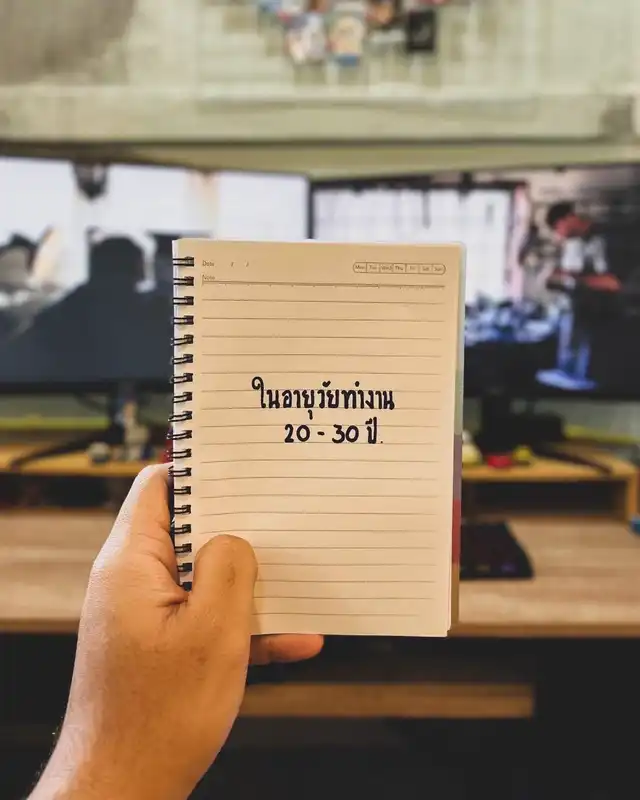 Date / /
Mon Tue Wed Thu Fri Sat Sun
Note
ในอายุวัยทำงาน
20 - 30 ปี.